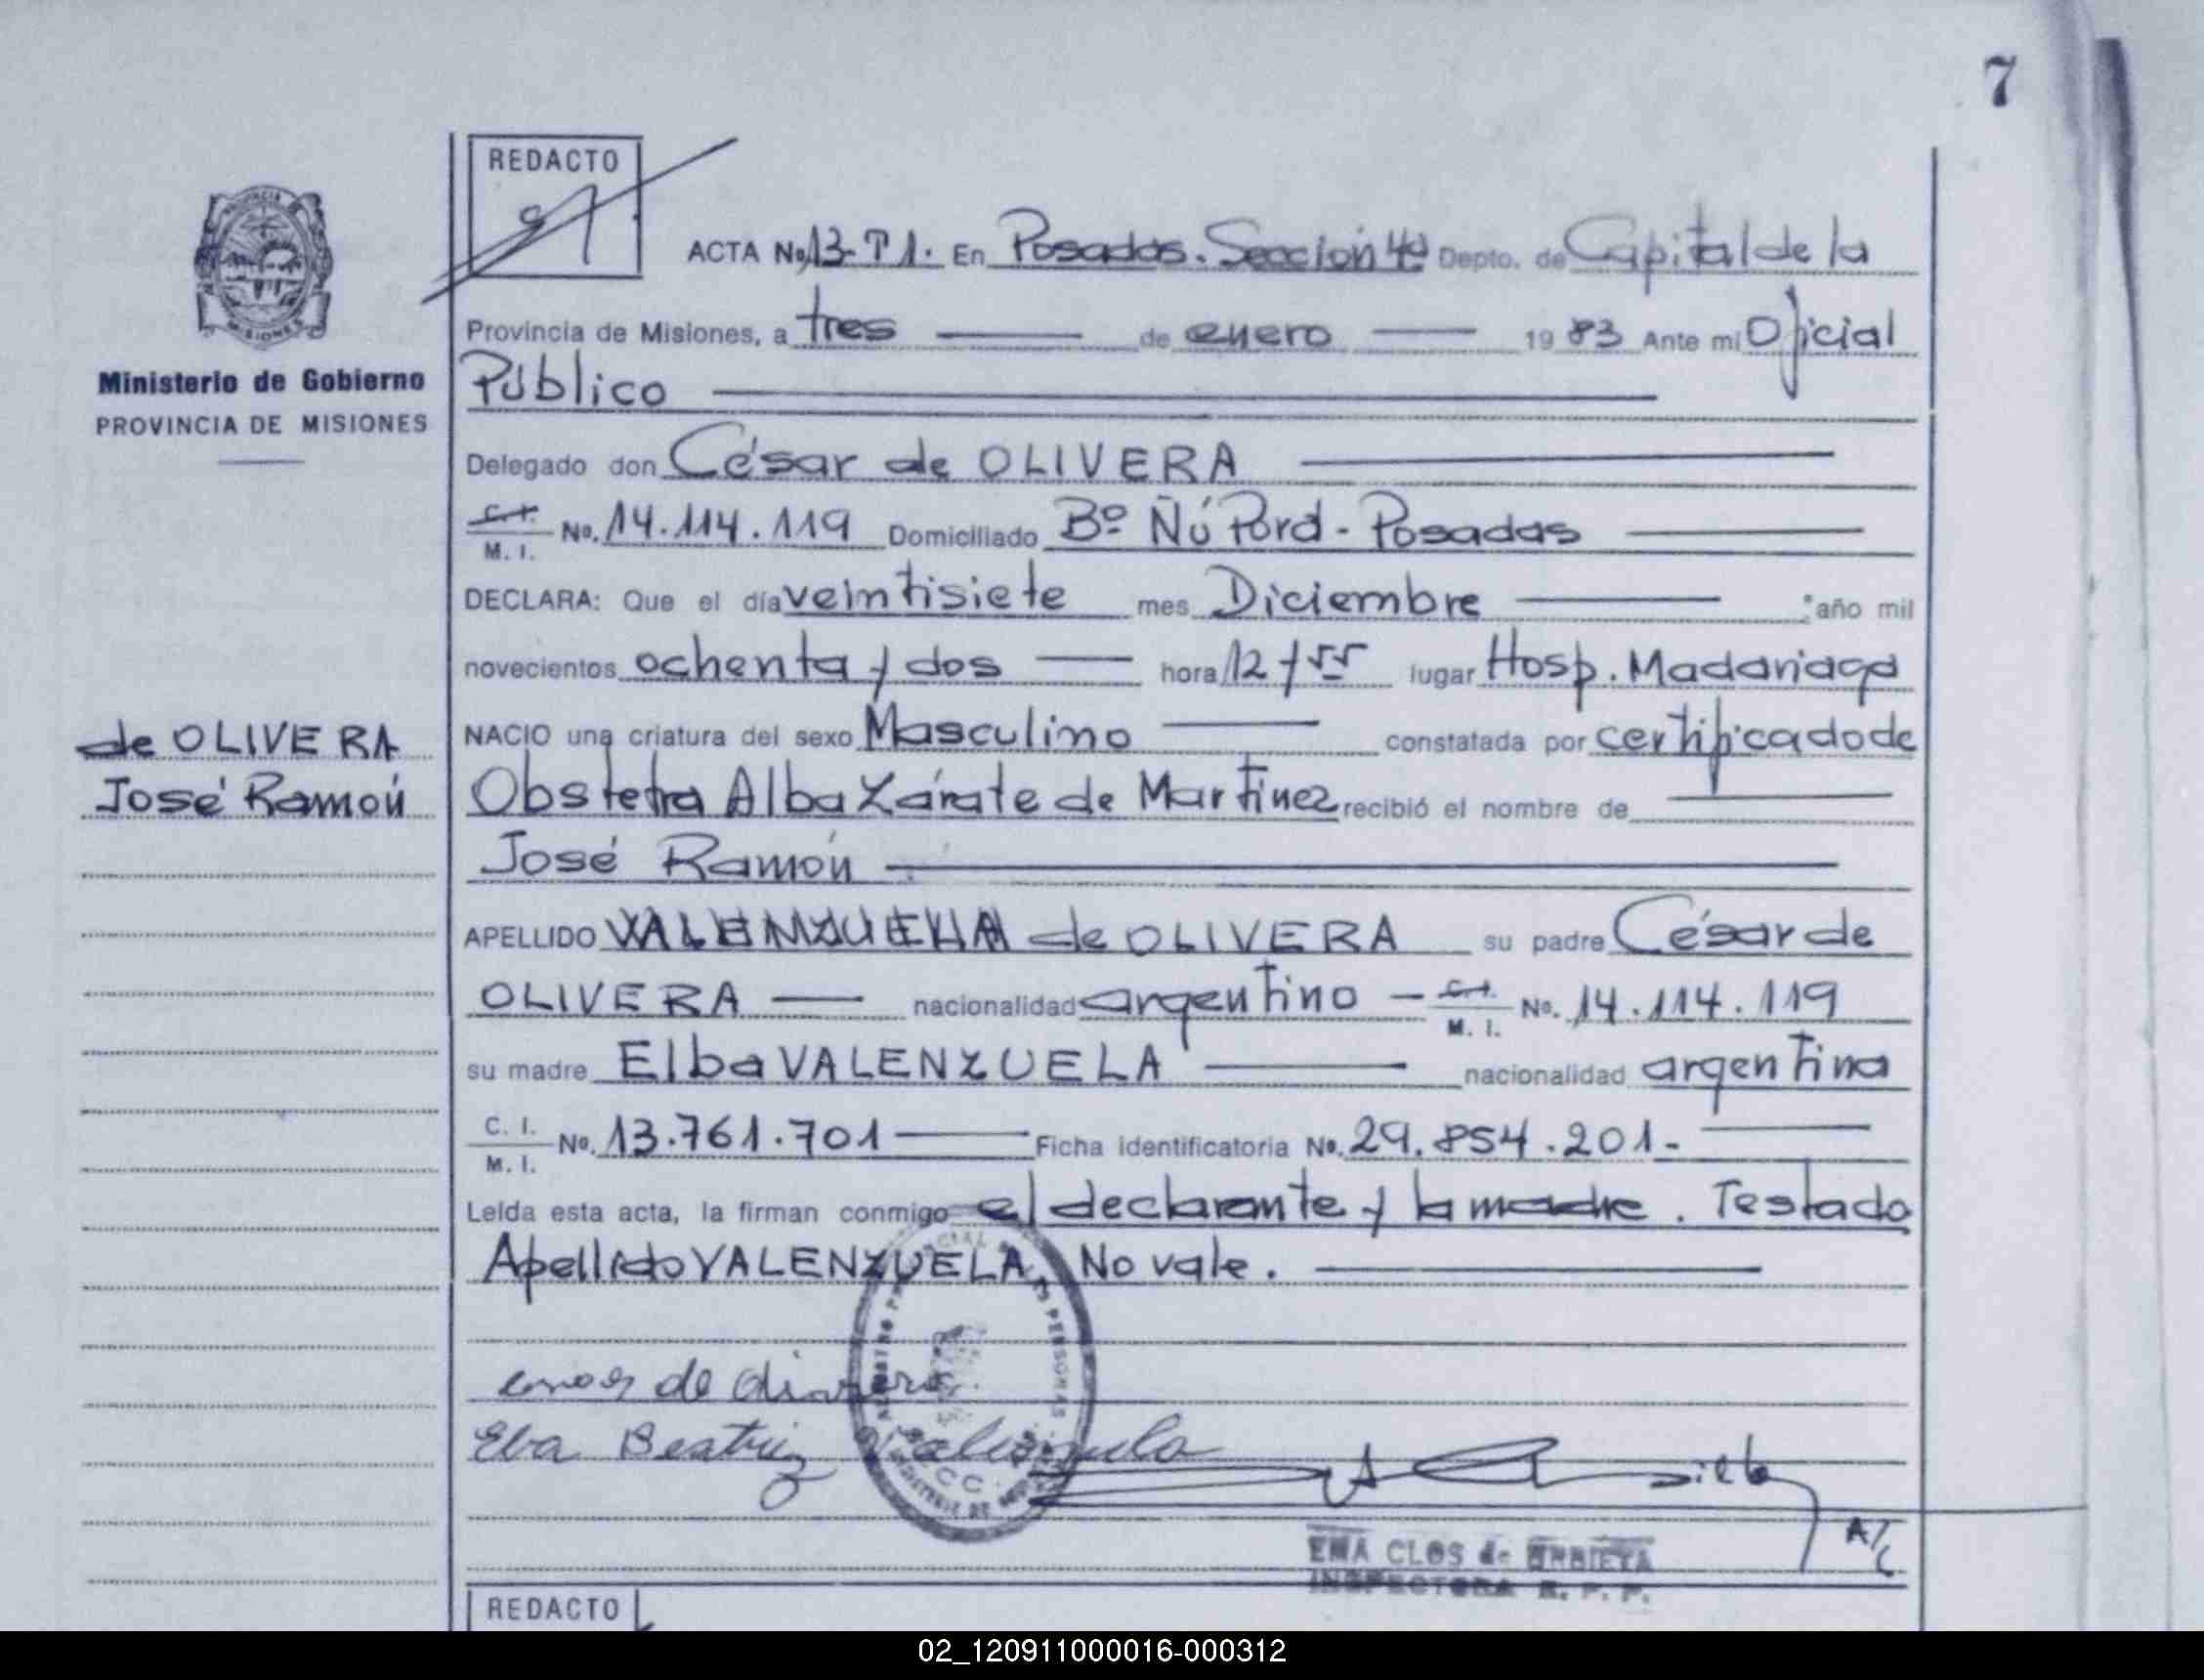 7
REDACTO
ACTA No. 13-T1. En Posadas. Sección 4ª Depto. de Capital de la
Provincia de Misiones, a tres de enero 1983 Ante mi Oficial
Público
Ministerio de Gobierno
PROVINCIA DE MISIONES
Delegado don César de OLIVERA
C.I. M. I. No. 14.114.119 Domiciliado Bº Ñú Porá - Posadas
DECLARA: Que el día veintisiete mes Diciembre año mil
novecientos ochenta y dos hora 12 y 55 lugar Hosp. Madariaga
NACIO una criatura del sexo Masculino constatada por certificado de
de OLIVERA
José Ramón
Obstetra Alba Zárate de Martinez recibió el nombre de
José Ramón
APELLIDO VALENZUELA de OLIVERA su padre César de
OLIVERA nacionalidad argentino - C.I. M. I. No. 14.114.119
su madre Elba VALENZUELA nacionalidad argentina
C. I. M. I. No. 13.761.701 Ficha identificatoria No. 29.854.201-
Leída esta acta, la firman conmigo el declarante y la madre. Testado
Apellido VALENZUELA No vale.
de
Elva Beatriz
A/C
EMA CLOS de URBIETA
INSPECTORA R. P. P.
REDACTO
02_120911000016-000312